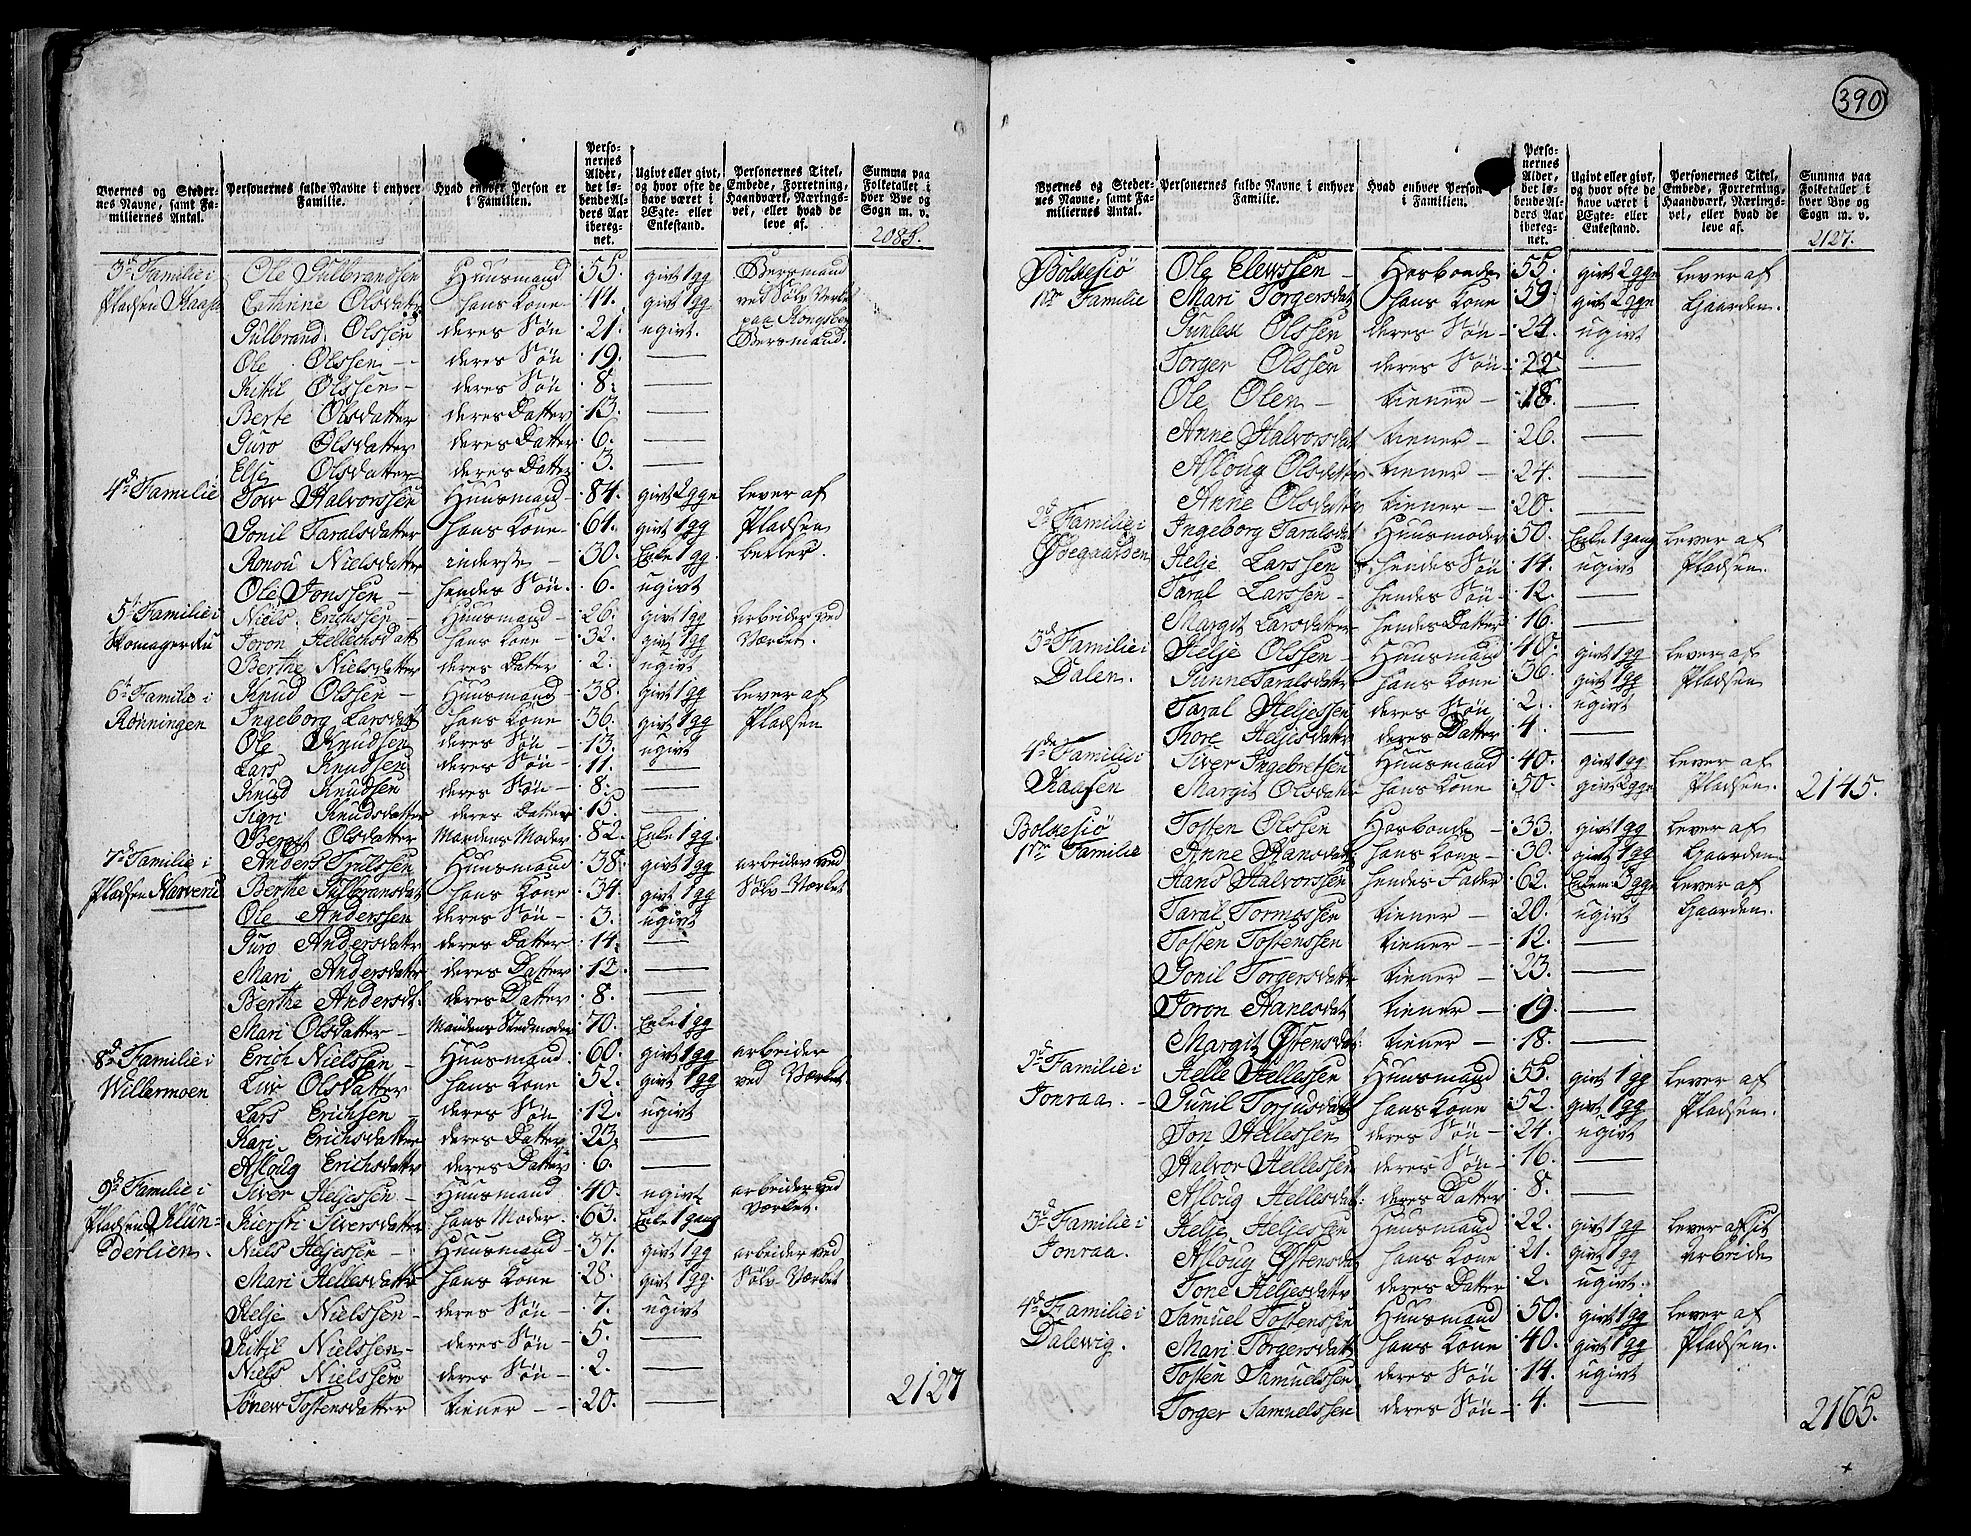 390
Byernes og Steder-
nes Navne, samt Fa-
miliernes Antal.
Personernes fulde Navne i enhver
Familie.
Hvad enhver Person er
i Familien.
Perso-
nernes
Alder,
det lø-
bende Al-
ders Aar
iberegnet.
Ugivt eller givt,
og hvor ofte de
have været i
Ægte- eller
Enkestand.
Personernes Titel,
Embede, Forretning,
Haandværk, Nærings-
vei, eller hvad de
leve af.
Summa paa
Folketallet i
hver Bye og
Sogn m. v.
2085.
3de Familie i Ole Gulbrandsen Huusmand 55. givt 1 gg Bergmand
Pladsen Haasen Cathrine Olsdatt hans Kone 44. givt 1 gg ved Sølv Verket
Gulbrand Olssen deres Søn 21. ugivt. paa Kongsberg
Ole Olssen deres Søn 19. Bergmand.
Kittil Olssen deres Søn 8.
Berte Olsdatter deres Datter 13.
Guro Olsdatter deres Datter 6.
Else Olsdatter deres Datter 3.
4de Familie Tov Halvorssen Huusmand 84. givt 2 gge lever af
Gonil Taralsdatter hans Kone 64. givt 1 gg Pladsen
Ronou Nielsdatter inderste 30. Enke 1 gg. betler.
Ole Jonssen hendes Søn 6. ugivt
5te Familie i Niels Erichssen Huusmand 26. givt 1 gg arbeider ved
Homagerdu Joron Hellechsdatt hans Kone 32. givt 1 gg Værket.
Berthe Nielsdatter deres Datter 2. ugivt
6te Familie i Knud Olssen Huusmand 38. givt 1 gg lever af
Rønningen Ingeborg Larsdatt hans Kone 36. givt 1 gg Pladsen
Ole Knudsen deres Søn 13. ugivt
Lars Knudsen deres Søn 11.
Knud Knudsen deres Søn 8.
Sigri Knudsdatter deres Datter 15.
Bergit Olsdatter Mandens Moder 82. Enke 1 gg.
7de Familie i Anders Trulssen Huusmand 38. givt 1 gg arbeider ved
Pladsen Narverud Berthe Gulbransdatt hans Kone 34. givt 1 gg Sølv-Værket
Ole Anderssen deres Søn 3. ugivt
Guro Andersdattr deres Datter 14.
Mari Andersdattr deres Datter 12.
Berthe Andersdt. deres Datter 8.
Mari Olsdatter Mandens Stedmoder 70. Enke 1 gg
8de Familie i Erich Nielssen Huusmand 60. givt 1 gg arbeider
Willermoen Liv Olsdatter hans Kone 52. givt 1 gg ved Værket
Lars Erichsen deres Søn 12. ugivt
Kari Erichsdatter deres Datter 23.
Asloug Erichsdattr deres Datter 6.
9de Familie i Siver Heljessen Huusmand 40. ugivt arbeider ved
Pladsen Klun- Kiersti Siversdatter hans Moder. 63. Enke 1 gang Værket.
derlien. Niels Heljessen Huusmand 37. givt 1 gg arbeider ved
Mari Hellesdattr hans Kone 28. givt 1 gg. Sølv-Værket
Helje Nielssen deres Søn 7. ugivt
Kittil Nielssen deres Søn 5.
Niels Nielssen deres Søn 2.
Tostensdatter tiener 20. 2127
Byernes og Steder-
nes Navne, samt Fa-
miliernes Antal.
Personernes fulde Navne i enhver
Familie.
Hvad enhver Person
i Familien.
Perso-
nernes
Alder,
det lø-
bende Al-
ders Aar
iberegnet.
Ugivt eller givt,
og hvor ofte de
have været i
Ægte- eller
Enkestand.
Personernes Titel,
Embede, Forretning,
Haandværk, Nærings-
vei, eller hvad de
leve af.
Summa paa
Folketallet i
hver Bye og
Sogn m. v.
2127.
Bolkesiø Ole Elevssen Hosbonde 55. givt 2 gge lever af
1ste Familie Mari Torgersdat hans Kone 59. givt 2 gge Gaarden.
Gunleu Olssen deres Søn 24. ugivt
Torger Olssen deres Søn 22
Ole Olen tiener 18.
Anne Halvorsdat tiener 26.
Asloug Olsdatter tiener 24.
Anne Olsdatter tiener 20.
2de Familie i Ingeborg Taralsdat Huusmoder 50. Enke 1 gang lever af
Ødegaarden Helje Larssen hendes Søn 14. ugivt Pladsen.
Taral Larssen hendes Søn 12.
Margit Larsdatter hendes Datter 16.
3de Familie i Helje Olssen Huusmand 40. givt 1 gg lever af
Dalen. Gunne Taralsdattr hans Kone 36. givt 1 gg Pladsen
Taral Heljessen deres Søn 2. ugivt
Tore Heljesdattr deres Datter 4.
4de Familie i Siver Ingebretsen Huusmand 40. givt 1 gg lever af
Haasen Margit Olsdatr hans Kone 50. givt 2 gge Pladsen. 2145.
Bolkesiø Tosten Olssen Hosbonde 33. givt 1 gg lever af
1ste Familie Anne Hansdatt hans Kone 30. givt 1 gg Gaarden
Hans Halvorssen hendes Fader 62. Enkem: 3 gge lever af
Taral Tormossen tiener 20. ugivt Gaarden.
Tosten Tostenssen tiener 12.
Gonil Torgersdattr tiener 23.
Joron Hansdat tiener 19.
Margit Østensdat: tiener 18.
2de Familie i Helle Hellessen Huusmand 55. givt 1 gg lever af
Jonraa. Gunil Torjusdatt hans Kone 52. givt 1 gg Pladsen.
Jon Hellessen deres Søn 24. ugivt
Halvor Hellessen deres Søn 16.
Asloug Hellesdatt: deres Datter 8.
3de Familie i Helje Heljessen Huusmand 22. givt 1 gg lever af sit
Jonraa. Asloug Østensdat hans Kone 21. givt 1 gg arbeide
Tone Heljesdattr deres Datter 2. ugivt.
4de Familie i Samuel Tostenssen Huusmand 50. givt 1 gg lever af
Dalewig. Mari Torgersdatt hans Kone 40. givt 1 gg Pladsen.
Tosten Samuelssen deres Søn 14. ugivt
Torger Samuelssen deres Søn 4. 2165.